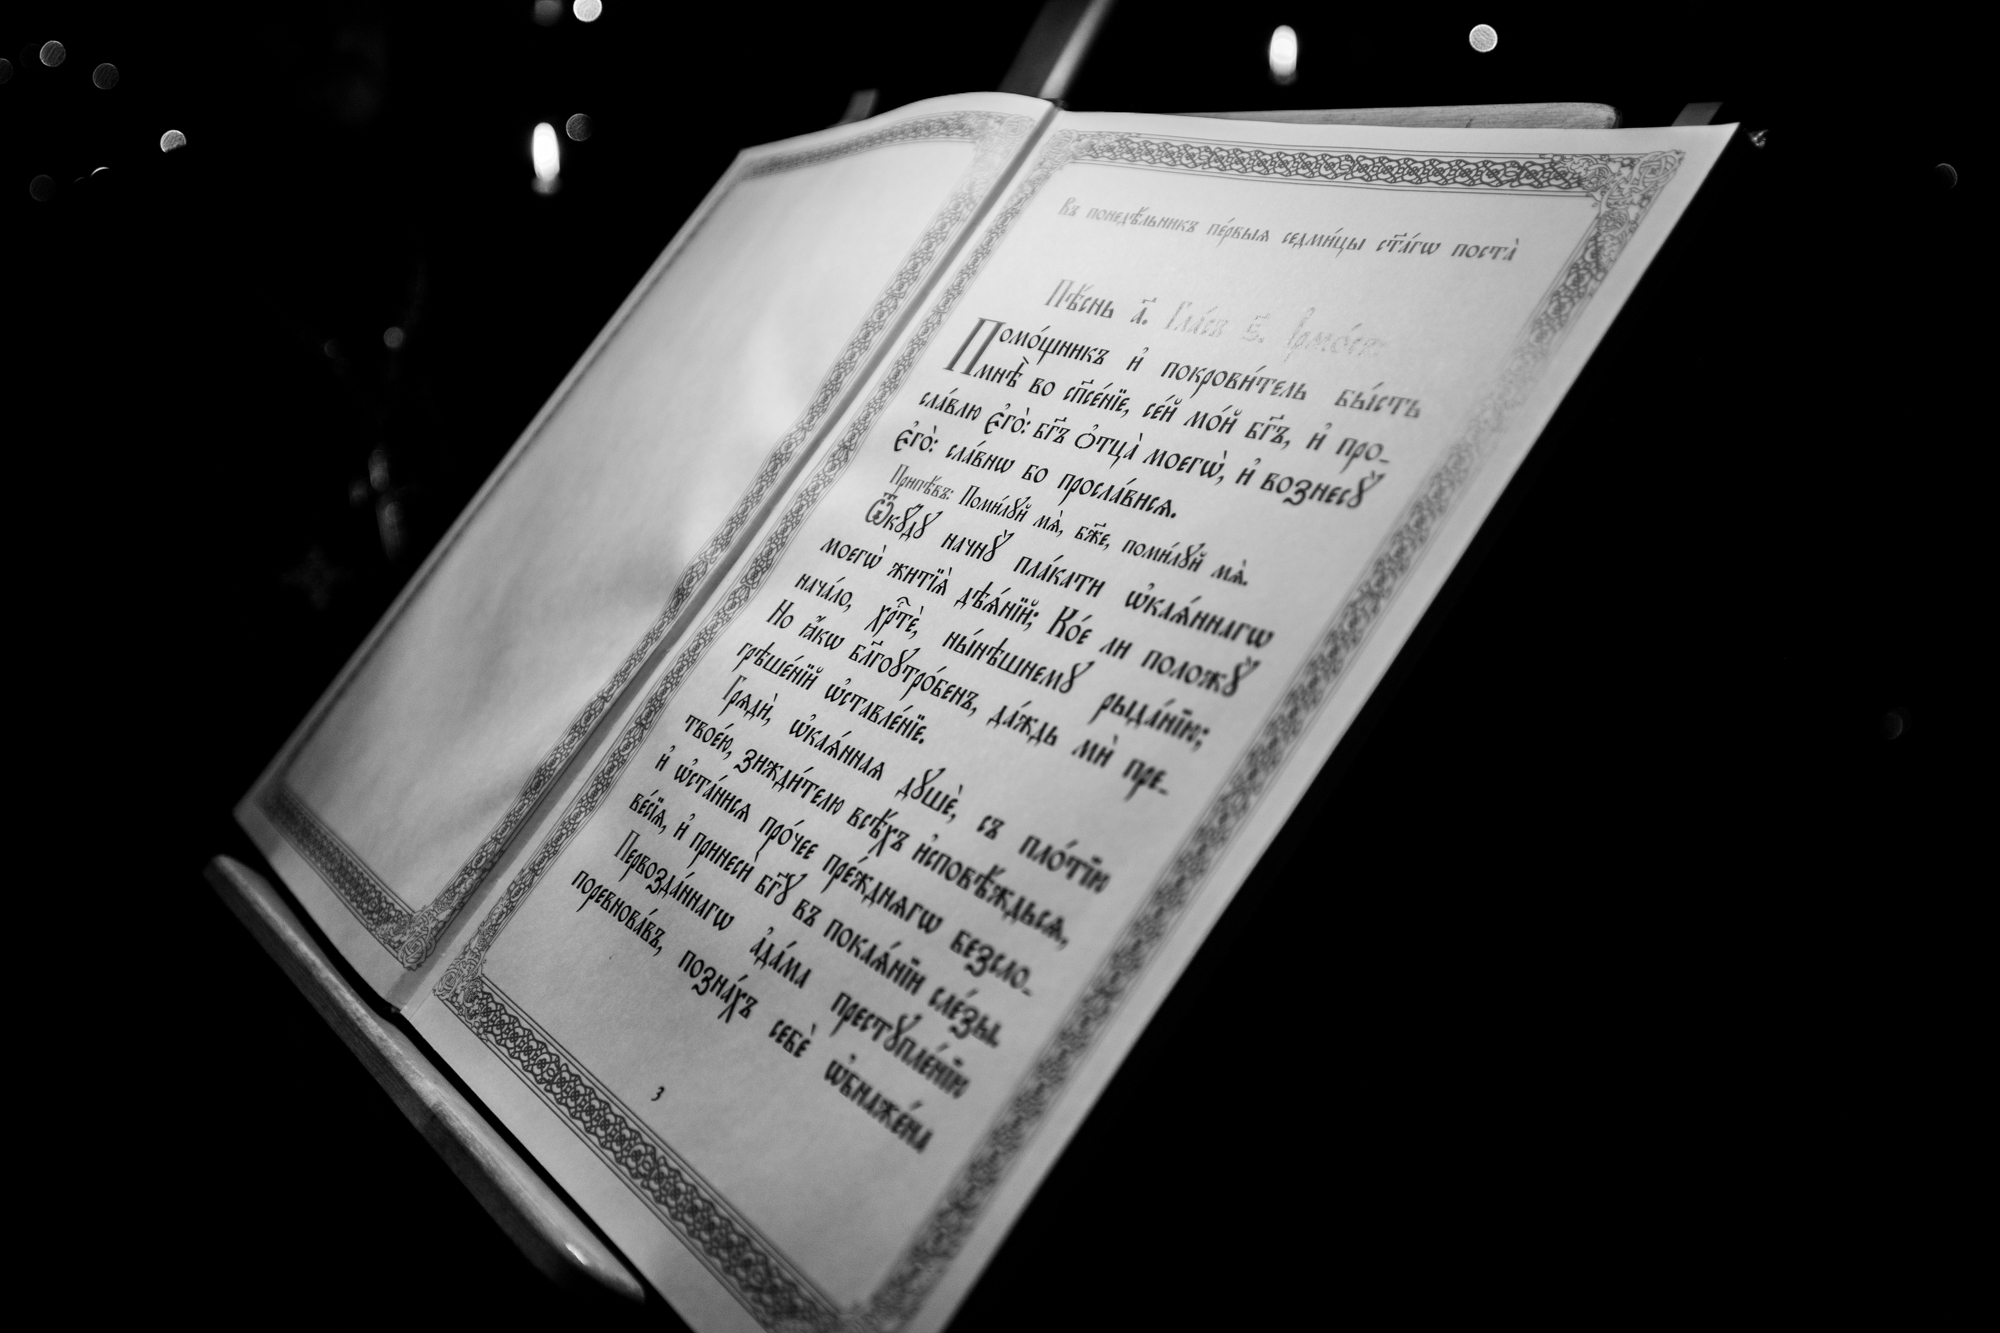 Въ понедѣ́льникъ пе́рвыѧ седми́цы ст҃а́гѡ поста̀
Пѣ́снь а҃. Гла́съ ѕ҃. Їрмо́съ:
Помо́щникъ и҆ покрови́тель бы́сть
мнѣ̀ во сп҃се́нїе, се́й мо́й бг҃ъ, и҆ про-
сла́влю є҆го̀: бг҃ъ Ѻ҆тца̀ моегѡ̀, и҆ вознесꙋ̀
є҆го̀: сла́внѡ бо просла́висѧ.
Припѣ́въ: Поми́лꙋй мѧ̀, бж҃е, поми́лꙋй мѧ̀.
Ѿкꙋ́дꙋ начнꙋ̀ пла́кати ѡ҆каѧ́ннагѡ
моегѡ̀ житїѧ̀ дѣѧ́нїй; Ко́е ли положꙋ̀
нача́ло, хрⷭ҇тѐ, ны́нѣшнемꙋ рыда́нїю;
Но ꙗ҆́кѡ бл҃гоꙋтро́бенъ, да́ждь мѝ пре-
грѣше́нїй ѡ҆ставле́нїе.
Грѧдѝ, ѡ҆каѧ́ннаѧ дꙋшѐ, съ пло́тїю
твое́ю, зижди́телю всѣ́хъ и҆сповѣ́ждьсѧ,
и҆ ѡ҆ста́нисѧ про́чее пре́ждиѧгѡ безсло-
ве́сїѧ, и҆ принесѝ бг҃ꙋ въ покаѧ́нїи сле́зы.
Первозда́ннагѡ а҆да́ма престꙋпле́нїю
поревнова́въ, позна́хъ себѐ ѡ҆бнаже́на
3